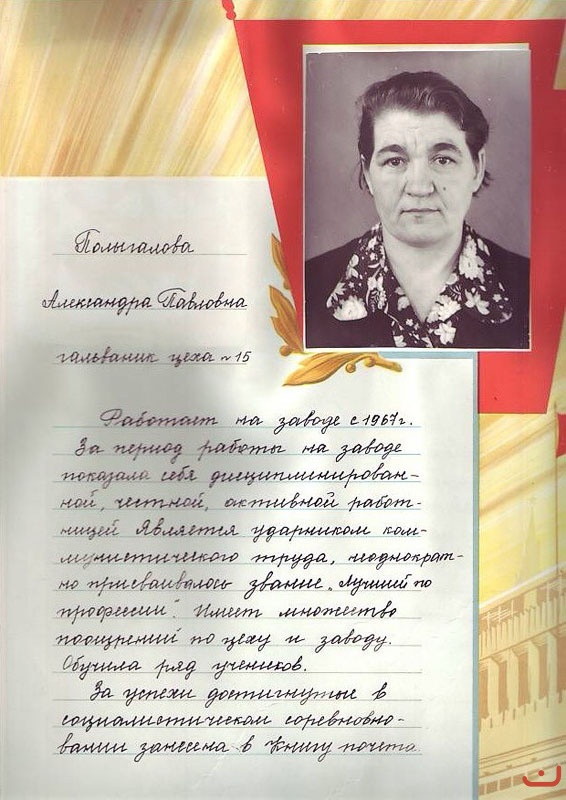 Полыгалова
Александра Павловна
гальваник цеха №15
Работает на заводе с 1967г.
За период работы на заводе
показала себя дисциплинирован-
ной, честной, активной работ-
ницей Является ударником ком-
мунистического труда, неоднократ-
но присваивалось звание „Лучший по
профессии". Имеет множество
поощрений по цеху и заводу.
Обучила ряд учеников.
За успехи достигнутые в
социалистическом соревнова-
нии занесена в Книгу почета